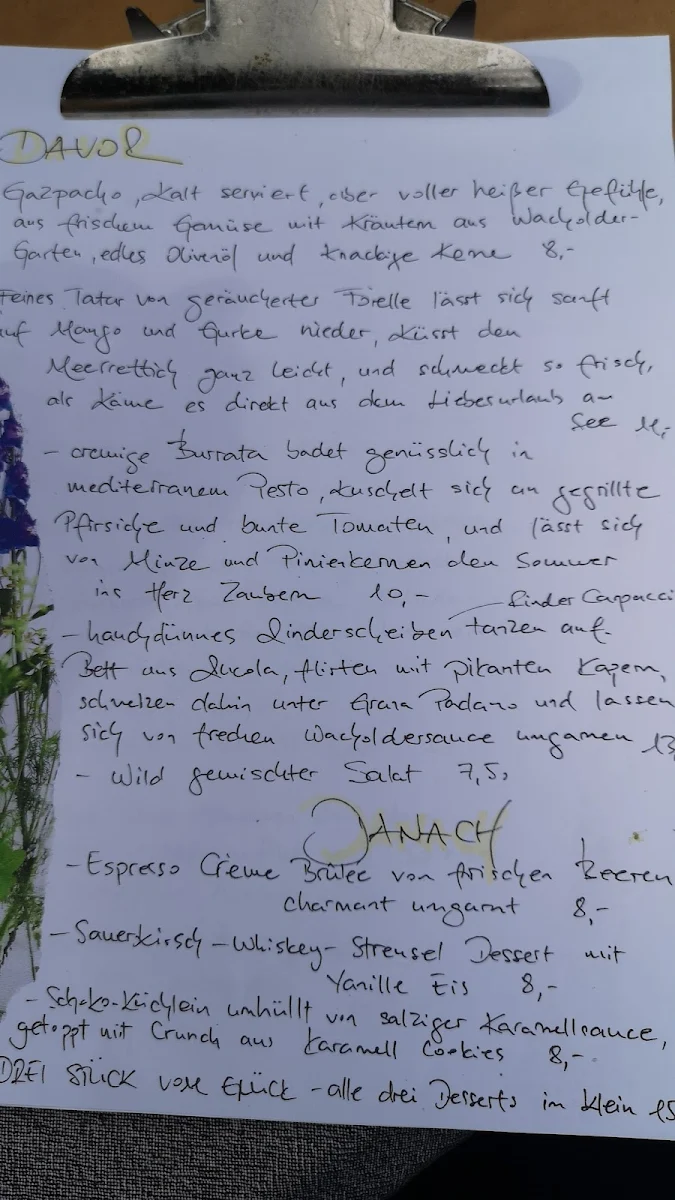 DAVOR
Gazpacho, kalt serviert, aber voller heißer Gefühle,
aus frischem Gemüse mit Kräutern aus Wacholder-
Garten, edles Olivenöl und knackige Kerne 8,-
Feines Tatar von geräucherter Forelle lässt sich sanft
auf Mango und Gurke nieder, küsst den
Meerrettich ganz leicht, und schmeckt so frisch,
als käme es direkt aus dem Liebesurlaub am
See 11,-
- cremige Burrata badet genüsslich in
mediterranem Pesto, kuschelt sich an gegrillte
Pfirsiche und bunte Tomaten, und lässt sich
von Minze und Pinienkernen den Sommer
ins Herz Zaubern 10,-
Rinder Carpacci
- hauchdünnes Rinderscheiben tanzen auf
Bett aus Rucola, flirten mit pikanten Kapern,
schmelzen dahin unter Grana Padano und lassen
sich von frechen Wacholdersauce umgarnen 13,
- Wild gemischter Salat 7,5,
DANACH
- Espresso Crème Brûlée von frischen Beeren
charmant umgarnt 8,-
- Sauerkirsch-Whiskey-Streusel Dessert mit
Vanille Eis 8,-
- Schoko-Küchlein umhüllt von salziger Karamellsauce,
getoppt mit Crunch aus Karamell Cookies 8,-
DREI STÜCK VOM GLÜCK - alle drei Desserts im klein 15